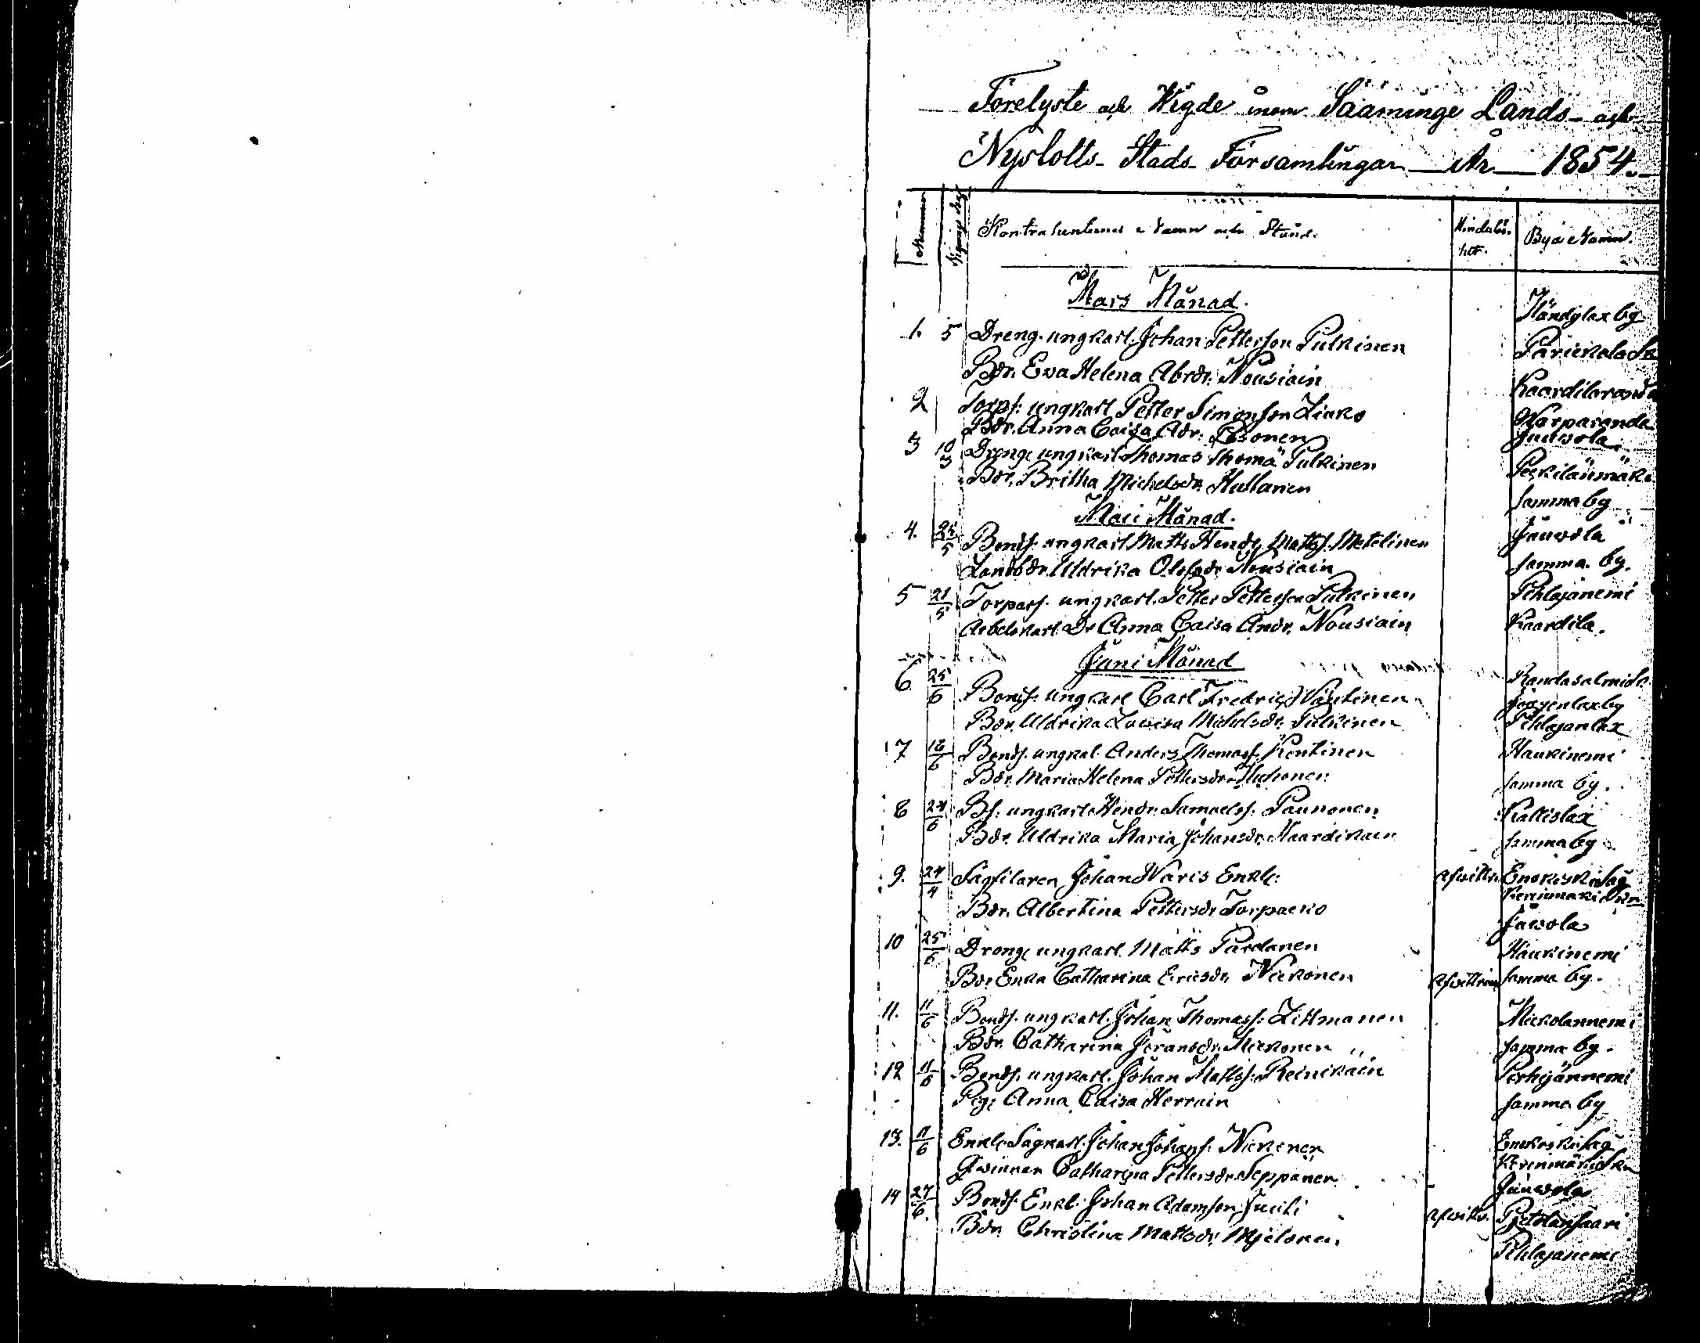 Förelyste och Wigde inom Sääminge Lands- och
Nyslotts- Stads- Församlingar År 1854.
Nummer
Wignings dag
Kontrahenternes Namn och Stånd.
Hinderlös-
het.
Bya Namn.
Mars Månad.
Händglax by
1. 5 Dreng. ungkarl. Johan Petterson Pulkinen Parickala
Bdr. Eva Helena Abrdr. Nousiain Kaardila
2 Torps: ungkarl Petter Simonson Liuko Warparanda
Bdr. Anna Caisa Adr. Juuvola
3 10/3 Dreng. ungkarl Thomas Thomä Pulkinen Peckilänmäki
Bdr. Britha Michelsdr. Hullanen samma by
Maii Månad.
4. 25/5 Bonds. ungkarl Matts Hendr. Matts. Metelinen Juuvola
Landbdr. Uldrika Olofsdr. Nousiain samma by.
5 21/5 Torpars. ungkarl. Petter Petterson Pulkinen Pihlajanemi
Arbetskarl. Dr Anna Caisa Andr. Nousiain Kaardila.
Juni Månad
6. 25/6 Bonds. ungkarl Carl Fredric Randasalmi
Bdr. Uldrika Lovisa Michelsdr. Pulkinen Pihlajanlax
7 18/6 Bonds. ungkal. Anders Thomas. Kontinen Haukinemi
Bdr. Maria Helena Pettersdr. samma by.
8 24/6 Bs. ungkarl. Hendr. Samuelss. Paunonen Kallislax
Bdr. Uldrika Maria Johansdr. Kaardikain samma by
9. 24/4 Sågfilaren Johan Waris Enkl: afwittr. Enokoski Såg
Kerimäki Skn
Bdr. Albertina Pettersdr. Torpacko Juvola
10 25/6 Dreng. ungkarl. Matts Pardanen Haukinemi
Bdr. Enka Catharina Ericsdr. Nickonen afwittrad samma by.
11. 11/6 Bonds. ungkarl. Johan Thomass: Littmanen Mickolannemi
Bdr. Catharina Göransdr. Mickonen samma by.
12 11/6 Bonds. ungkarl. Johan Matss. Reinikain Perhejännemi
Pig. Anna Caisa Herrain samma by
13. 11/6 Enkl. Sågkarl. Johan Johans. Nickonen Enokoski Såg
Kerimäki Skn
Qwinnan Catharina Pettersdr. Seppänen Juuvola
14 27/6 Bonds. Enkl. Johan Adamson Juuti afwittr. Pietolansaari
Bdr. Christina Mattsdr. Mjelonen. Pihlajanemi